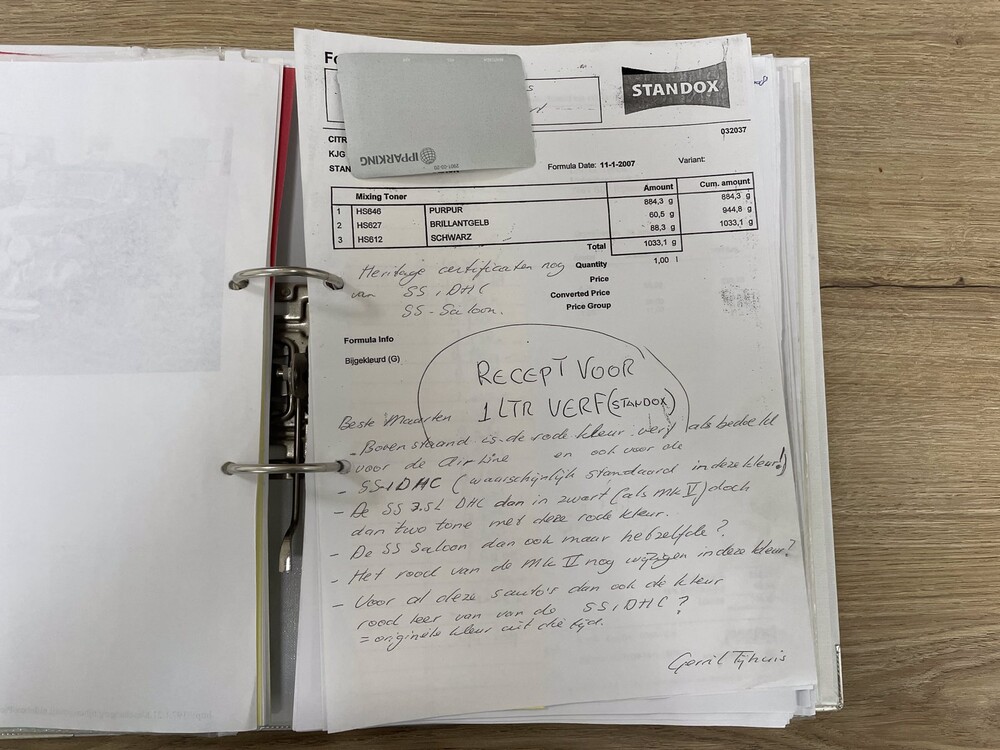 STANDOX
IPPARKING
032037
CITR
KJG
STAN
Formula Date: 11-1-2007 Variant:
Mixing Toner Amount Cum. amount
1 HS646 PURPUR 884,3 g 884,3 g
2 HS627 BRILLANTGELB 60,5 g 944,8 g
3 HS612 SCHWARZ 88,3 g 1033,1 g
Total 1033,1 g
Quantity 1,00 l
Price
Converted Price
Price Group
Heritage certificaten nog
van SS1 DHC
SS-Saloon.
Formula Info
Bijgekleurd (G)
RECEPT VOOR
1 LTR VERF (STANDOX)
Beste Maarten
- Bovenstaand is de rode kleur verf als bedoeld
voor de Airline en ook voor de
- SS1 DHC (waarschijnlijk standaard in deze kleur!)
- De SS 3.5L DHC dan in zwart (als MK V) doch
dan two tone met deze rode kleur.
- De SS Saloon dan ook maar hetzelfde?
- Het rood van de MK V nog wijzigen in deze kleur?
- Voor al deze 5 auto's dan ook de kleur
rood leer van van de SS1 DHC?
= originele kleur uit die tijd.
Gerrit Tijhuis